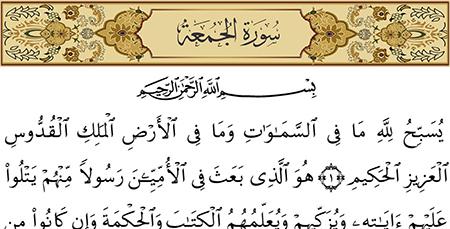 سُورَةُ الجُمُعَةِ
بِسْمِ ٱللَّهِ ٱلرَّحْمَٰنِ ٱلرَّحِيمِ
يُسَبِّحُ لِلَّهِ مَا فِى ٱلسَّمَٰوَٰتِ وَمَا فِى ٱلْأَرْضِ ٱلْمَلِكِ ٱلْقُدُّوسِ
ٱلْعَزِيزِ ٱلْحَكِيمِ ﴿١﴾ هُوَ ٱلَّذِى بَعَثَ فِى ٱلْأُمِّيِّـۧنَ رَسُولًا مِّنْهُمْ يَتْلُوا۟
عَلَيْهِمْ ءَايَٰتِهِۦ وَيُزَكِّيهِمْ وَيُعَلِّمُهُمُ ٱلْكِتَٰبَ وَٱلْحِكْمَةَ وَإِن كَانُوا۟ مِن